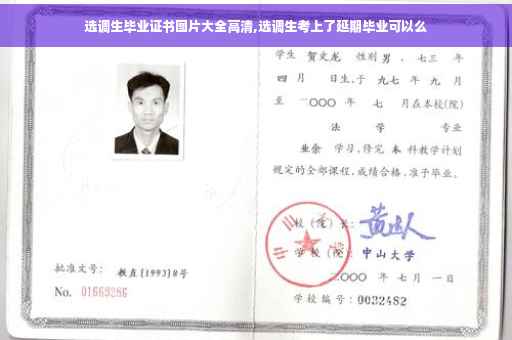 选调生毕业证书图片大全高清,选调生考上了延期毕业可以么
学生 贺文龙 性别 男 、七三 年
四 月 日生,于 九七 年 九 月
至 二〇〇〇 年 七 月在本校(院)
法 学 专业
业余 学习,修完 本 科教学计划
规定的全部课程,成绩合格,准予毕业。
校(院)长:
学校(院): 中山大学
二〇〇〇 年 七 月 一 日
学校编号: 0032482
批准文号: 教直[1993]8号
No. 01663286